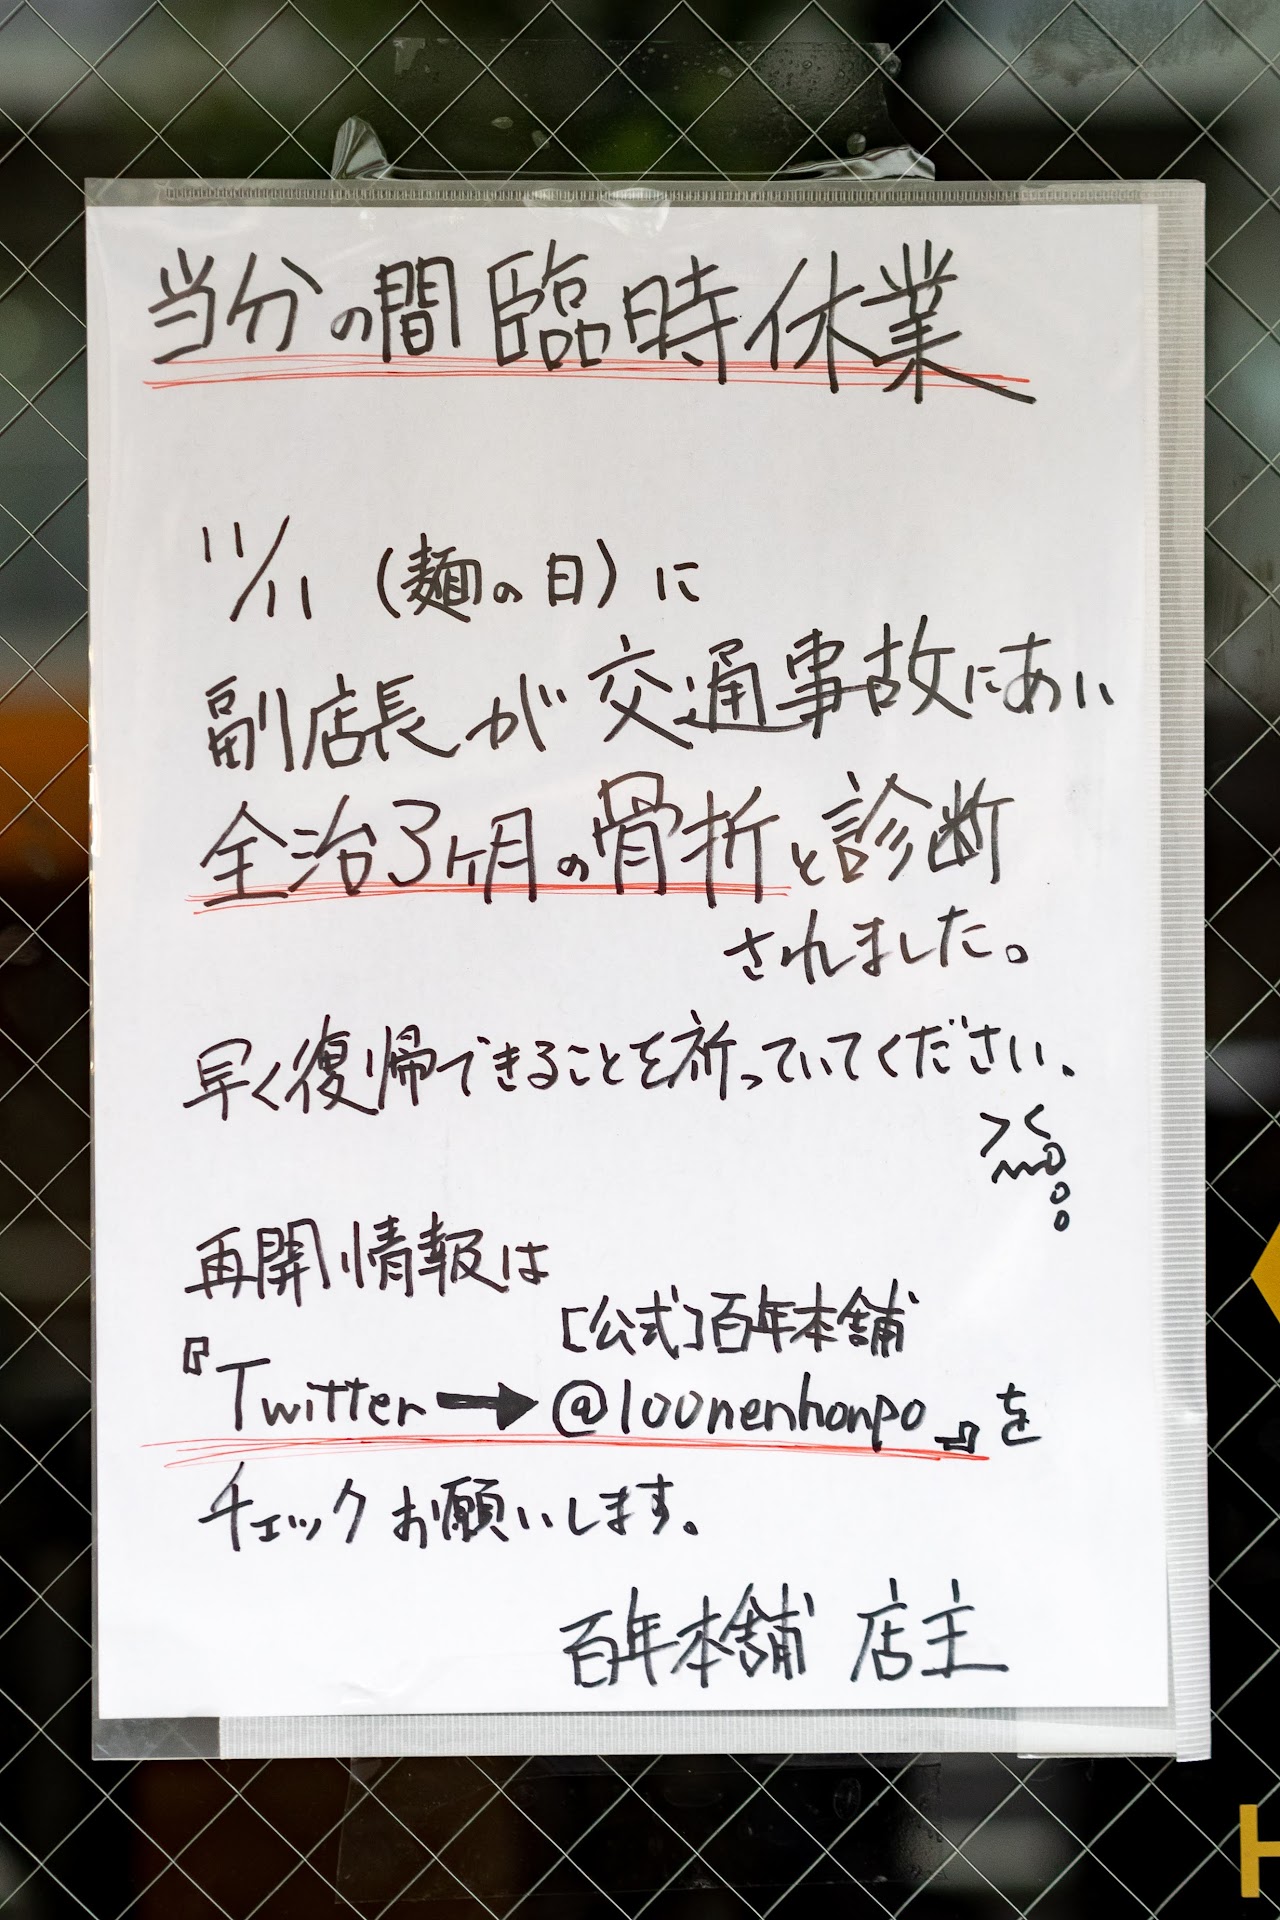 当分の間 臨時休業
11/11 (麺の日)に
副店長が交通事故にあい
全治3ヶ月の骨折と診断
されました。
早く復帰できることを祈っていてください、
再開情報は
[公式]百年本舗
『Twitter→@100nenhonpo』を
チェックお願いします。
百年本舗 店主
H